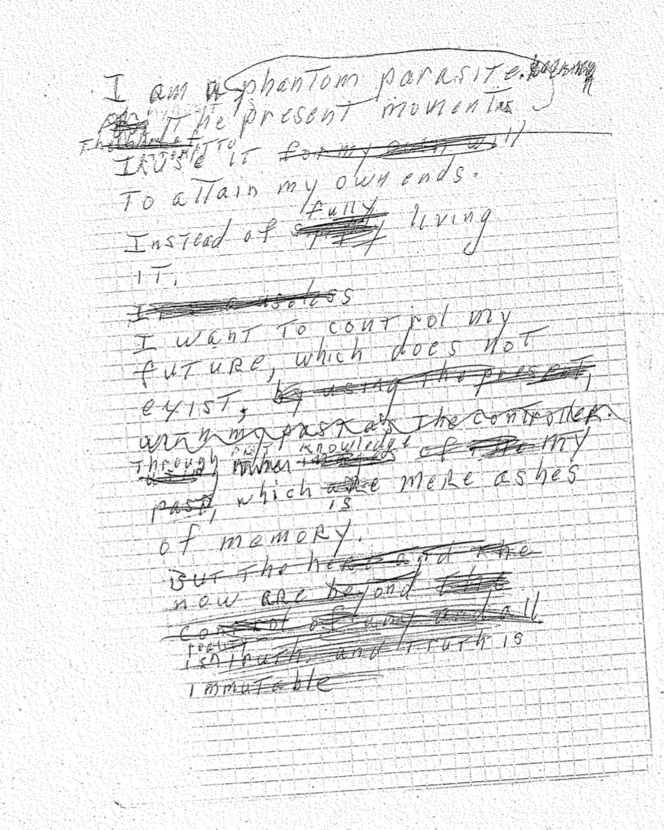 I am a phantom parasite.
The present moment
I use it for my own will
To attain my own ends.
fully
Instead of living
it.
Is a useless
I want to control my
future, which does not
exist, by using the present,
with my past as the controller.
knowledge
Through of my
past, which are mere ashes
is
of memory.
But the here and the
now are beyond the
control of any and all
is truth and truth is
immutable